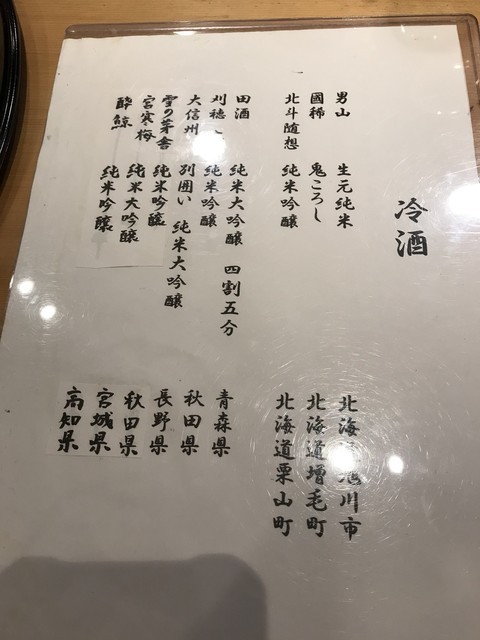 冷酒
男山 生元純米 北海 旭川市
國稀 鬼ころし 北海道増毛町
北斗随想 純米吟醸 北海道栗山町
田酒 純米大吟醸 四割五分 青森県
刈穂 純米吟醸 秋田県
大信州 別囲い 純米大吟醸 長野県
雪の茅舎 純米吟醸 秋田県
宮寒梅 純米大吟醸 宮城県
酔鯨 純米吟醸 高知県